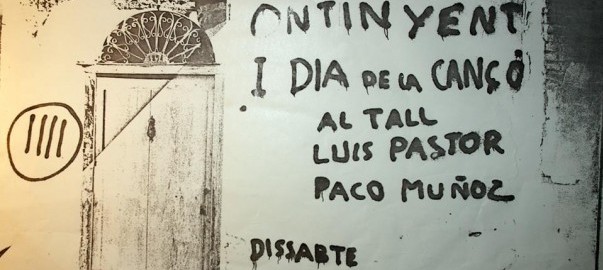 ONTINYENT
I DIA DE LA CANÇÓ
AL TALL
LUIS PASTOR
PACO MUÑOZ
DISSABTE